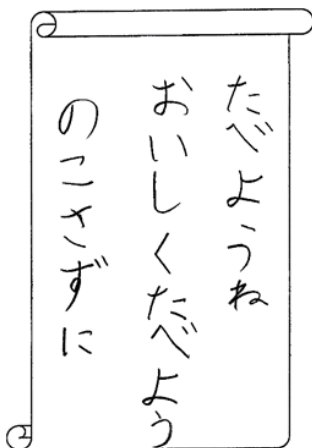 たべようね
おいしくたべよう
のこさずに